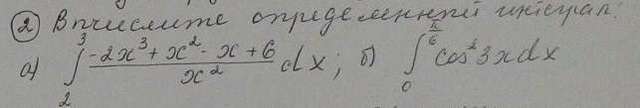 ② Вычислите определенный интеграл:
а) ∫₂³ (-2x³ + x² - x + 6)/x² dx; б) ∫₀^(π/6) cos² 3x dx